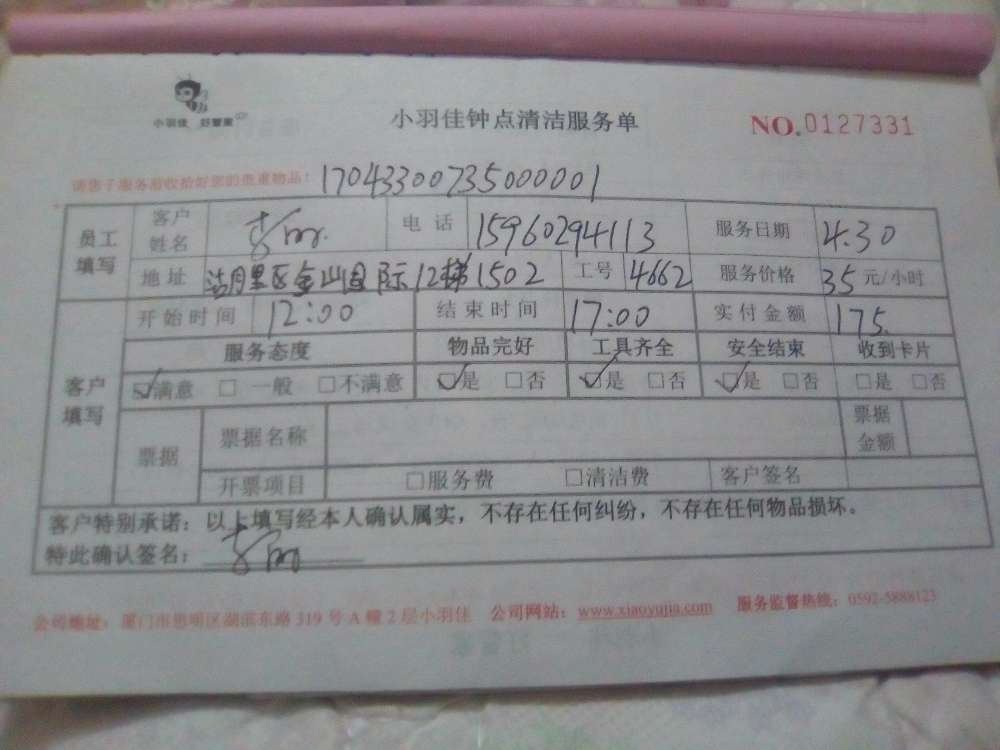 小羽佳 好管家
小羽佳钟点清洁服务单
NO.0127331
请您于服务前收拾好您的贵重物品! 17043300735000001
员工填写 客户姓名 电话 15960294113 服务日期 4.30
地址 湖里区金山国际12梯1502 工号 4662 服务价格 35元/小时
客户填写 开始时间 12:00 结束时间 17:00 实付金额 175.
服务态度 物品完好 工具齐全 安全结束 收到卡片
☑满意 □一般 □不满意 ☑是 □否 ☑是 □否 ☑是 □否 □是 □否
票据 票据名称 票据金额
开票项目 □服务费 □清洁费 客户签名
客户特别承诺：以上填写经本人确认属实，不存在任何纠纷，不存在任何物品损坏。
特此确认签名：
公司地址：厦门市思明区湖滨东路319号A幢2层小羽佳 公司网站：www.xiaoyujia.com 服务监督热线：0592-5888123